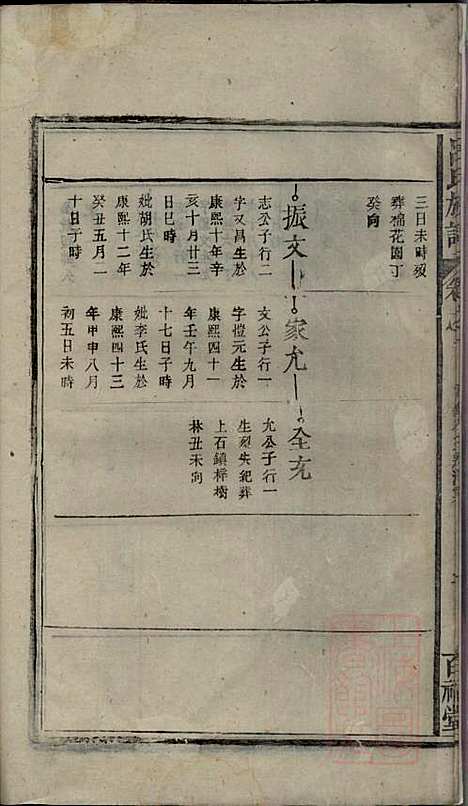 三日未時歿
葬棉花園丁
癸向
振文
志公子行二
字又昌生於
康熙十年辛
亥十月廿三
日巳時
妣胡氏生於
康熙十二年
癸丑五月一
十日子時
家允
文公子行一
字愷元生於
康熙四十一
年壬午九月
十七日子時
妣李氏生於
康熙四十三
年甲申八月
初五日未時
全充
允公子行一
生歿失紀葬
上石鎮樟樹
林丑未向
氏族譜